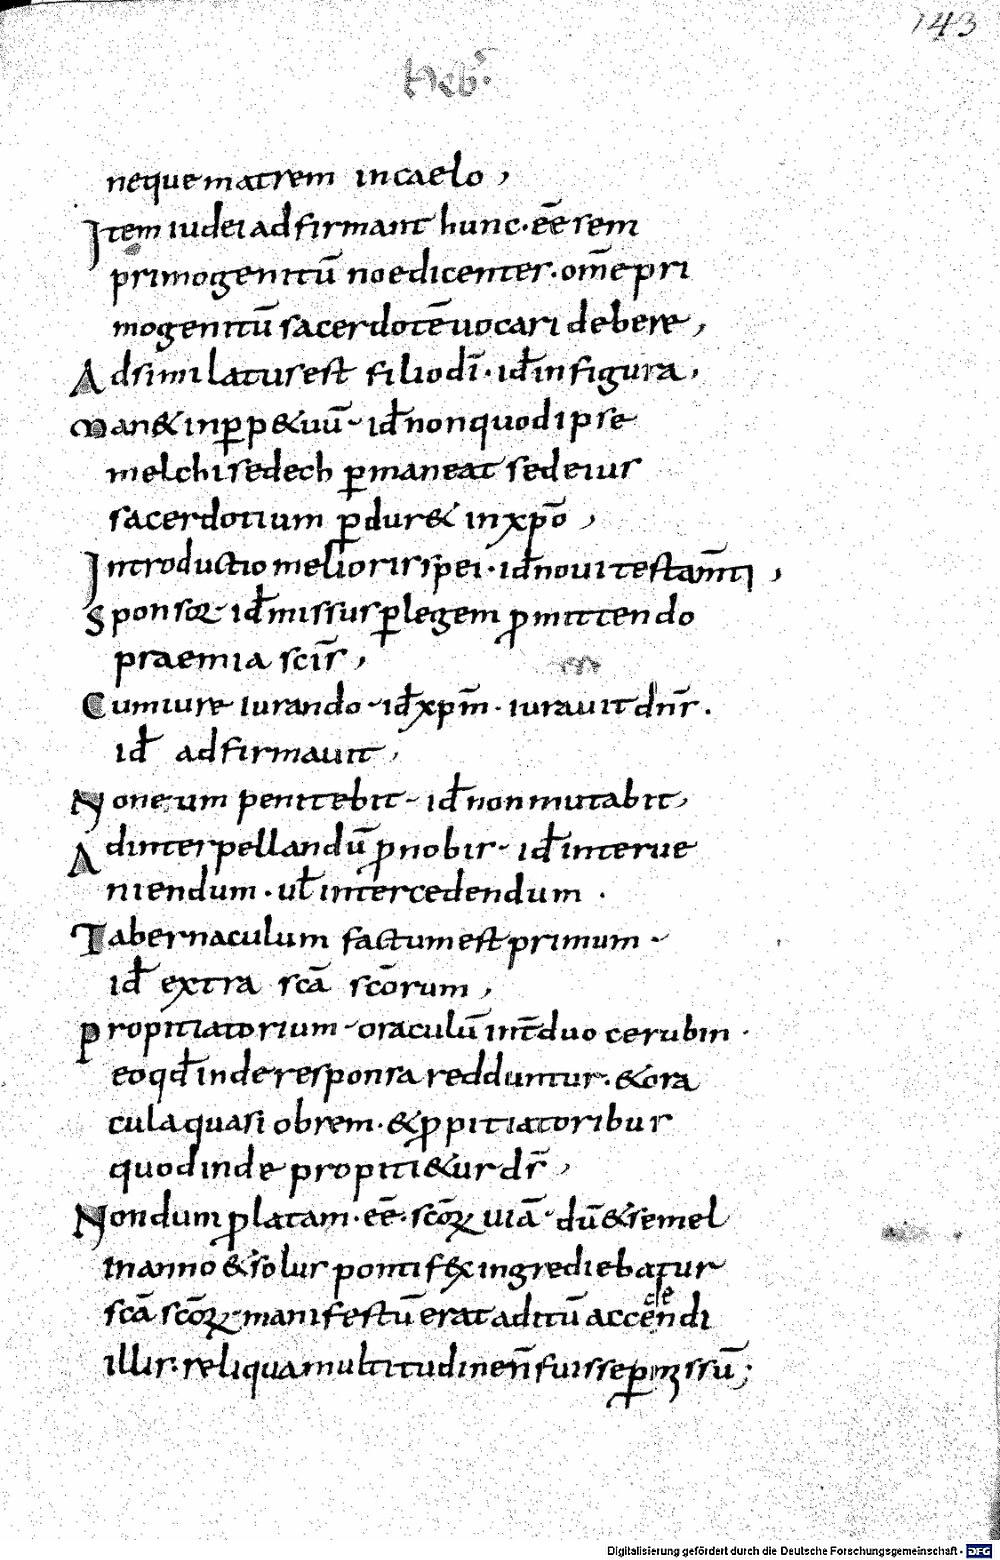 143
heb᷒.
neque matrem in caelo ,
Item iudei adfirmant hunc · eē sem
primogenitū noe dicenter · om̄e pri
mogenitū sacerdotē uocari debere ,
Adsimilatus est filio dī · id̄ in figura ,
Man& in ꝑp&uū - id̄ non quod ipse
melchisedech ꝑmaneat sed eius
sacerdotium ꝑdur& in xp̄o ,
Introductio melioris spei · id̄ noui testam̄ti ,
Sponsoꝝ - id̄ missus ꝑ legem ꝓmittendo
praemia sc̄is ,
Cum iure iurando - id̄ xpm̄ · iurauit dn̄s .
id̄ adfirmauit ,
Non eum penitebit - id̄ non mutabit ,
Ad interpellandū ꝓ nobis - id̄ interue
niendum · ul̄ intercedendum .
Tabernaculum factum est primum -
id̄ extra sc̄a sc̄orum ,
Propitiatorium - oraculū int̄ duo cerubin .
eo qd̄ inde responsa redduntur · & ora
cula quasi obrem · & ꝓpitiatoribus
quod inde propiti&ur ds̄ ,
Nondum ꝓlatam · eē · sc̄oꝝ uiā - dū & semel
In anno & solus pontifex ingrediebatur
sc̄a sc̄oꝝ - manifestū erat aditū accendi
cđe
illis · reliqua multitudine n̄ fuisse ꝑmissū ;
Digitalisierung gefördert durch die Deutsche Forschungsgemeinschaft - DFG